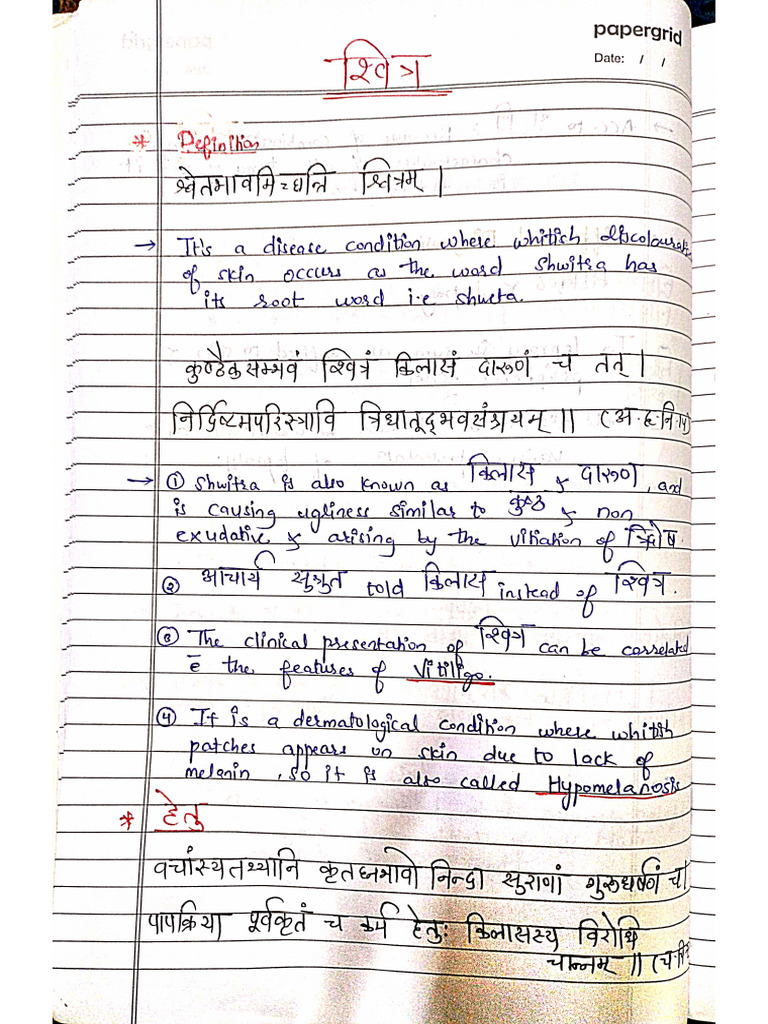 papergrid
Date: / /
श्वित्र
* Definition
श्वेतभावमिच्छन्ति श्वित्रम् ।
→ It's a disease condition where whitish discolourati
of skin occurs as the word Shwitra has
its root word i.e shweta.
कुष्ठैकसम्भवं श्वित्रं किलासं दारुणं च तत् ।
निर्दिष्टमपरिस्त्रावि त्रिधातूद्भवसंश्रयम् ।। (अ.हृ.नि.14)
→ ① Shwitra is also known as किलास & दारुण, and
is causing ugliness similar to कुष्ठ & non
exudative & arising by the vitiation of त्रिदोष.
② आचार्य सुश्रुत told किलास instead of श्वित्र.
③ The clinical presentation of श्वित्र can be correlated
c̄ the features of Vitiligo.
④ It is a dermatological condition where whitish
patches appears on skin due to lack of
melanin, so it is also called Hypomelanosis
* हेतु
वचांस्यतथ्यानि कृतघ्नभावो निन्दा सुराणां गुरुधर्षणं च।
पापक्रिया पूर्वकृतं च कर्म हेतुः किलासस्य विरोधि
चान्नम् ।। (च.चि